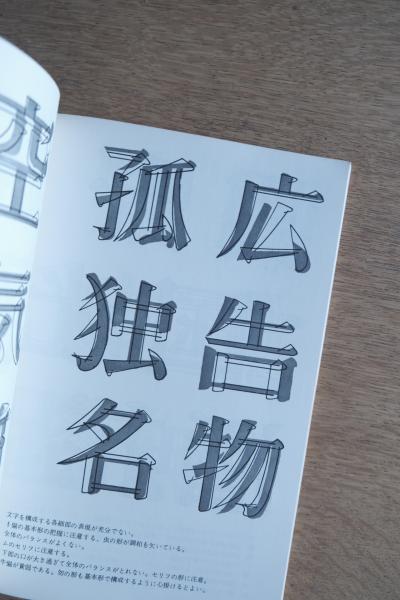 広告物
孤独名
文字を構成する各細部の表現が充分でない。
偏の基本形の把握に注意する、虫の形が調和を欠いている。
全体のバランスがよくない。
ムのセリフに注意する。
下部の口が大き過ぎて全体のバランスがとれない。セリフの形に注意。
牛偏が貧弱である。勿の形も基本形で構成するように心掛けるとよい。